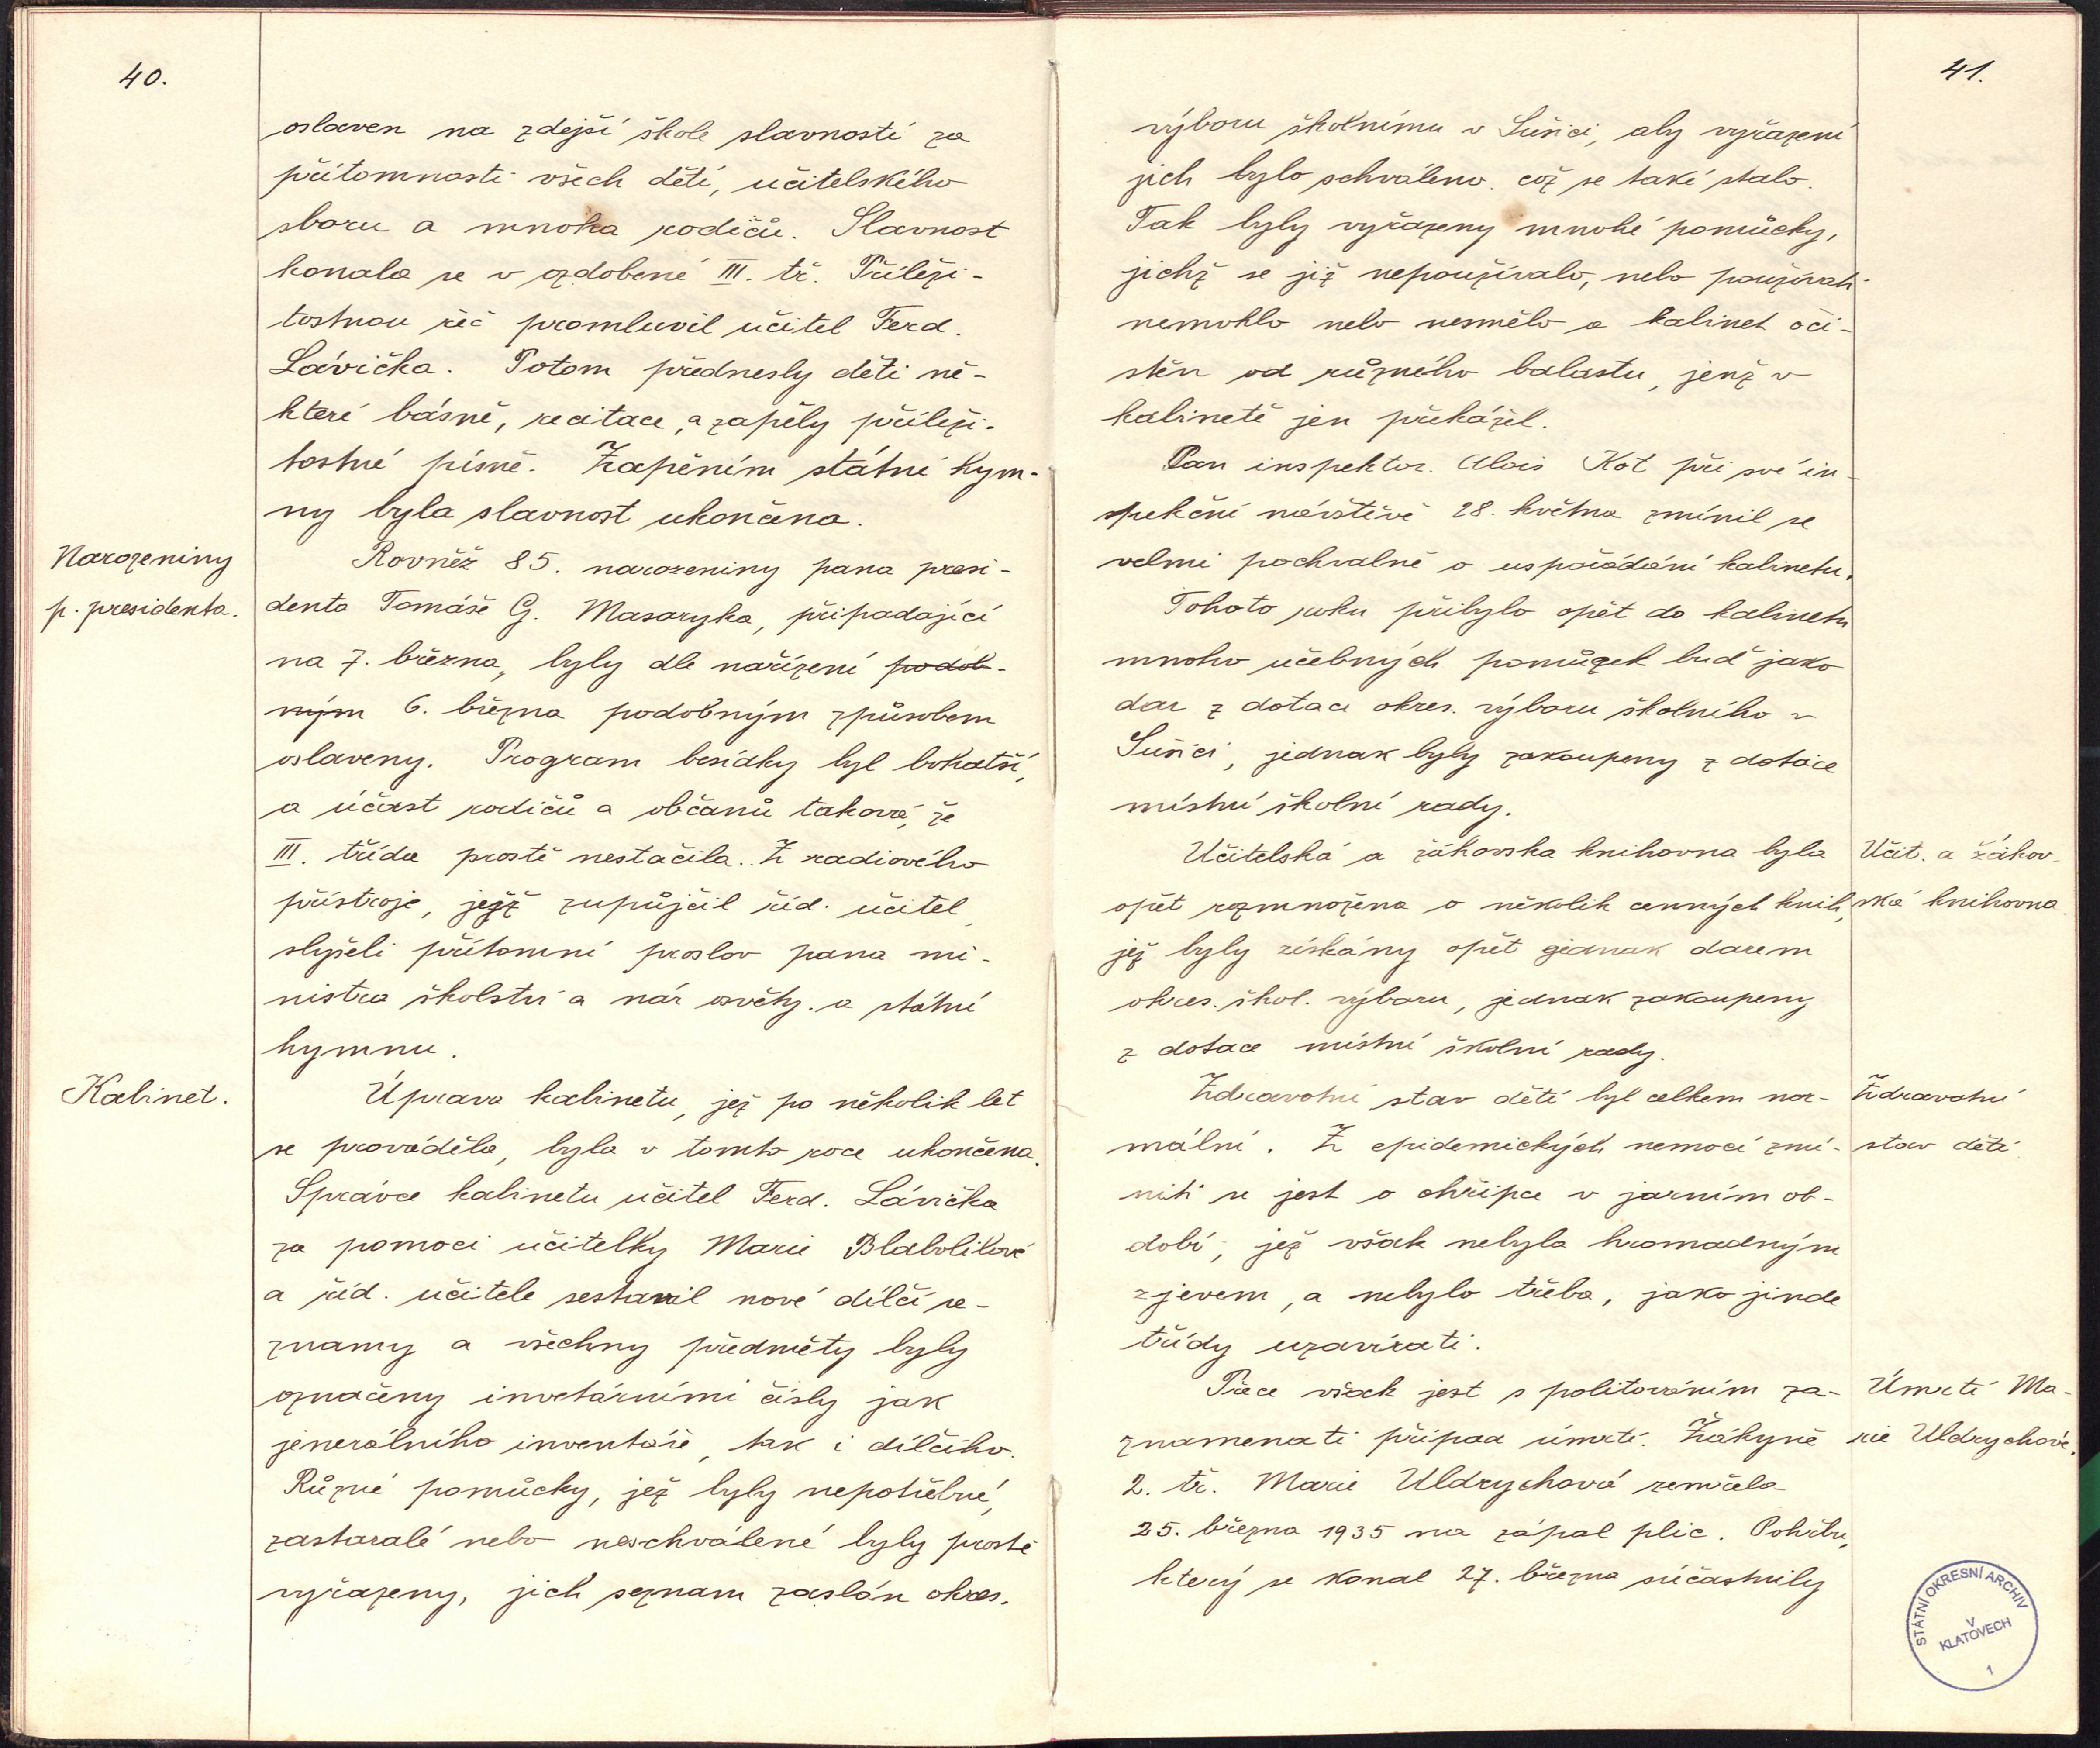 40.
oslaven na zdejší škole slavností za
přítomnosti všech dětí, učitelského
sboru a mnoha rodičů. Slavnost
konala se v ozdobené III. tř. Příleži-
tostnou řeč promluvil učitel Ferd.
Lávička. Potom přednesly děti ně-
které básně, recitace, a zapěly příleži-
tostné písně. Zapěním státní hym-
ny byla slavnost ukončena.
Narozeniny
p. presidenta.
Rovněž 85. narozeniny pana presi-
denta Tomáše G. Masaryka, připadající
na 7. března, byly dle nařízení podob-
ným 6. března podobným způsobem
oslaveny. Program besídky byl bohatší,
a účast rodičů a občanů taková, že
III. třída prostě nestačila. Z radiového
přístroje, jejž zupůjčil říd. učitel,
slyšeli přítomní proslov pana mi-
nistra školství a nár osvěty. a státní
hymnu.
Kabinet.
Úprava kabinetu, jež po několik let
se prováděla, byla v tomto roce ukončena.
Správce kabinetu učitel Ferd. Lávička
za pomoci učitelky Marie Blabolilové
a říd. učitele sestavil nové dílčí se-
znamy a všechny předměty byly
označeny invetárními čísly jak
jenerálního inventáře, tak i dílčího.
Různé pomůcky, jež byly nepotřebné,
zastaralé nebo neschválené byly prostě
vyřazeny, jich seznam zaslán okres.
41.
výboru školnímu v Sušici, aby vyřazení
jich bylo schváleno. což se také stalo.
Tak byly vyřazeny mnohé pomůcky,
jichž se již nepoužívalo, nebo používati
nemohlo nebo nesmělo a kabinet oči-
stěn od různého balastu, jenž v
kabinetě jen překážel.
Pan inspektor. Alois Kot při své in-
spekční návštěvě 28. května zmínil se
velmi pochvalně o uspořádání kabinetu.
Tohoto roku přibylo opět do kabinetu
mnoho učebných pomůzek buď jako
dar z dotace okres. výboru školního v
Sušici, jednak byly zakoupeny z dotace
místní školní rady.
Učitelská a žákovska knihovna byla
opět rozmnožena o několik cenných knih,
jež byly získány opět jednak darem
okres. škol. výboru, jednak zakoupeny
z dotace místní školní rady.
Učit. a žákov-
ská knihovna.
Zdravotní stav dětí byl celkem nor-
mální. Z epidemických nemocí zmí-
niti se jest o chřipce v jarním ob-
dobí, jež však nebyla hromadným
zjevem, a nebylo třeba, jako jinde
třídy uzavírati.
Zdravotní
stav dětí.
Přece však jest s politováním za-
znamenati případ úmrtí. Žákyně
2. tř. Marie Uldrychová zemřela
25. března 1935 na zápal plic. Pohřbu,
který se konal 27. března súčastnily
Úmrtí Ma-
rie Uldrychové.
STÁTNÍ OKRESNÍ ARCHIV
V
KLATOVECH
1